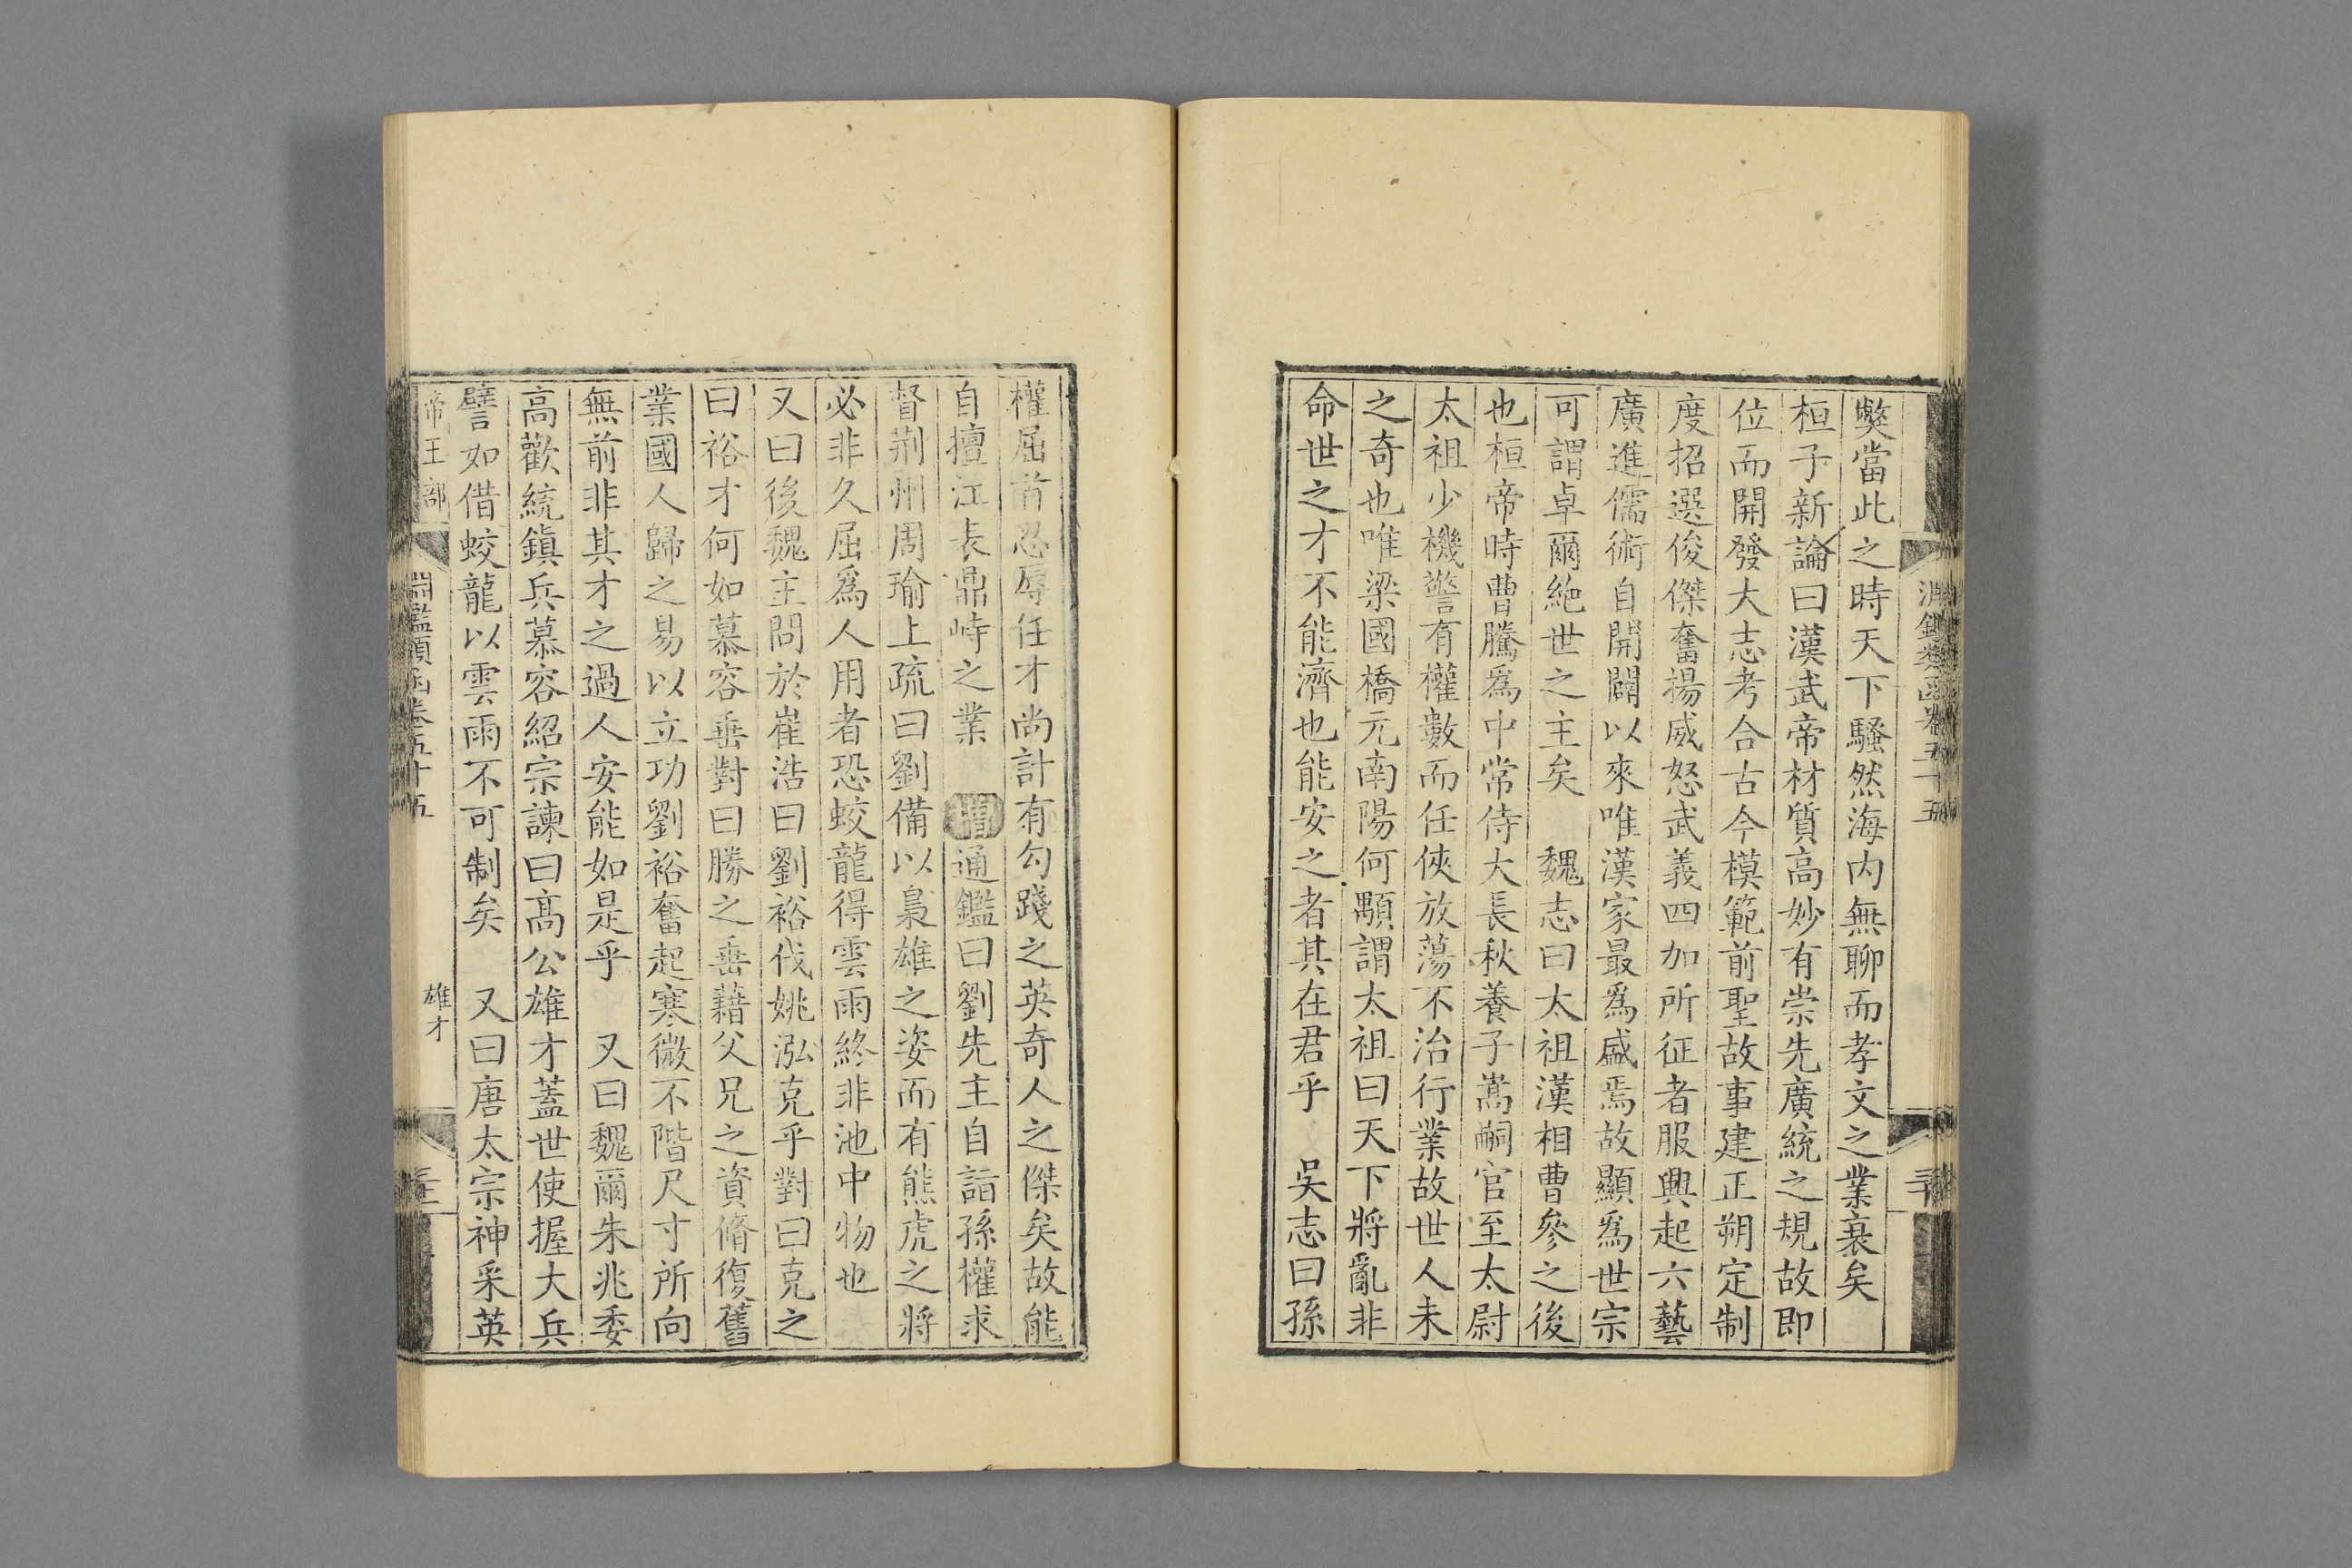 淵鑑類函卷五十五
弊當此之時天下騷然海内無聊而孝文之業衰矣
桓子新論曰漢武帝材質高妙有崇先廣統之規故即
位而開發大志考合古今模範前聖故事建正朔定制
度招選俊傑奮揚威怒武義四加所征者服興起六藝
廣進儒術自開闢以來唯漢家最爲盛焉故顯爲世宗
可謂卓爾絶世之主矣　魏志曰太祖漢相曹參之後
也桓帝時曹騰爲中常侍大長秋養子嵩嗣官至太尉
太祖少機警有權數而任俠放蕩不治行業故世人未
之奇也唯梁國橋元南陽何顒謂太祖曰天下將亂非
命世之才不能濟也能安之者其在君乎　吳志曰孫
權屈首忍辱任才尚計有勾踐之英奇人之傑矣故能
自擅江表鼎峙之業　增通鑑曰劉先主自詣孫權求
督荆州周瑜上疏曰劉備以梟雄之姿而有熊虎之將
必非久屈爲人用者恐蛟龍得雲雨終非池中物也
又曰後魏主問於崔浩曰劉裕伐姚泓克乎對曰克之
曰裕才何如慕容垂對曰勝之垂藉父兄之資脩復舊
業國人歸之易以立功劉裕奮起寒微不階尺寸所向
無前非其才之過人安能如是乎　又曰魏爾朱兆委
高歡統鎮兵慕容紹宗諫曰高公雄才蓋世使握大兵
譬如借蛟龍以雲雨不可制矣　又曰唐太宗神采英
帝王部　淵鑑類函卷五十五　雄才